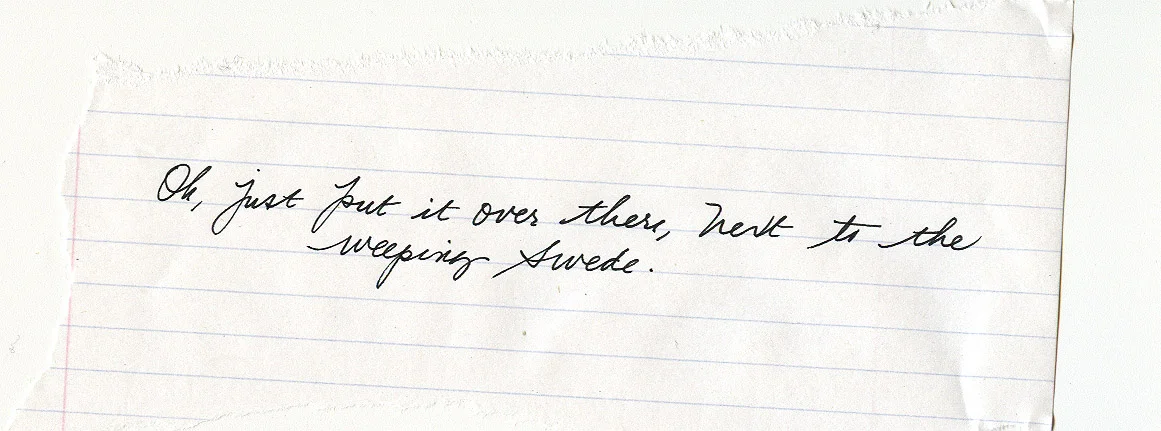 Oh, just put it over there, next to the
weeping Swede.